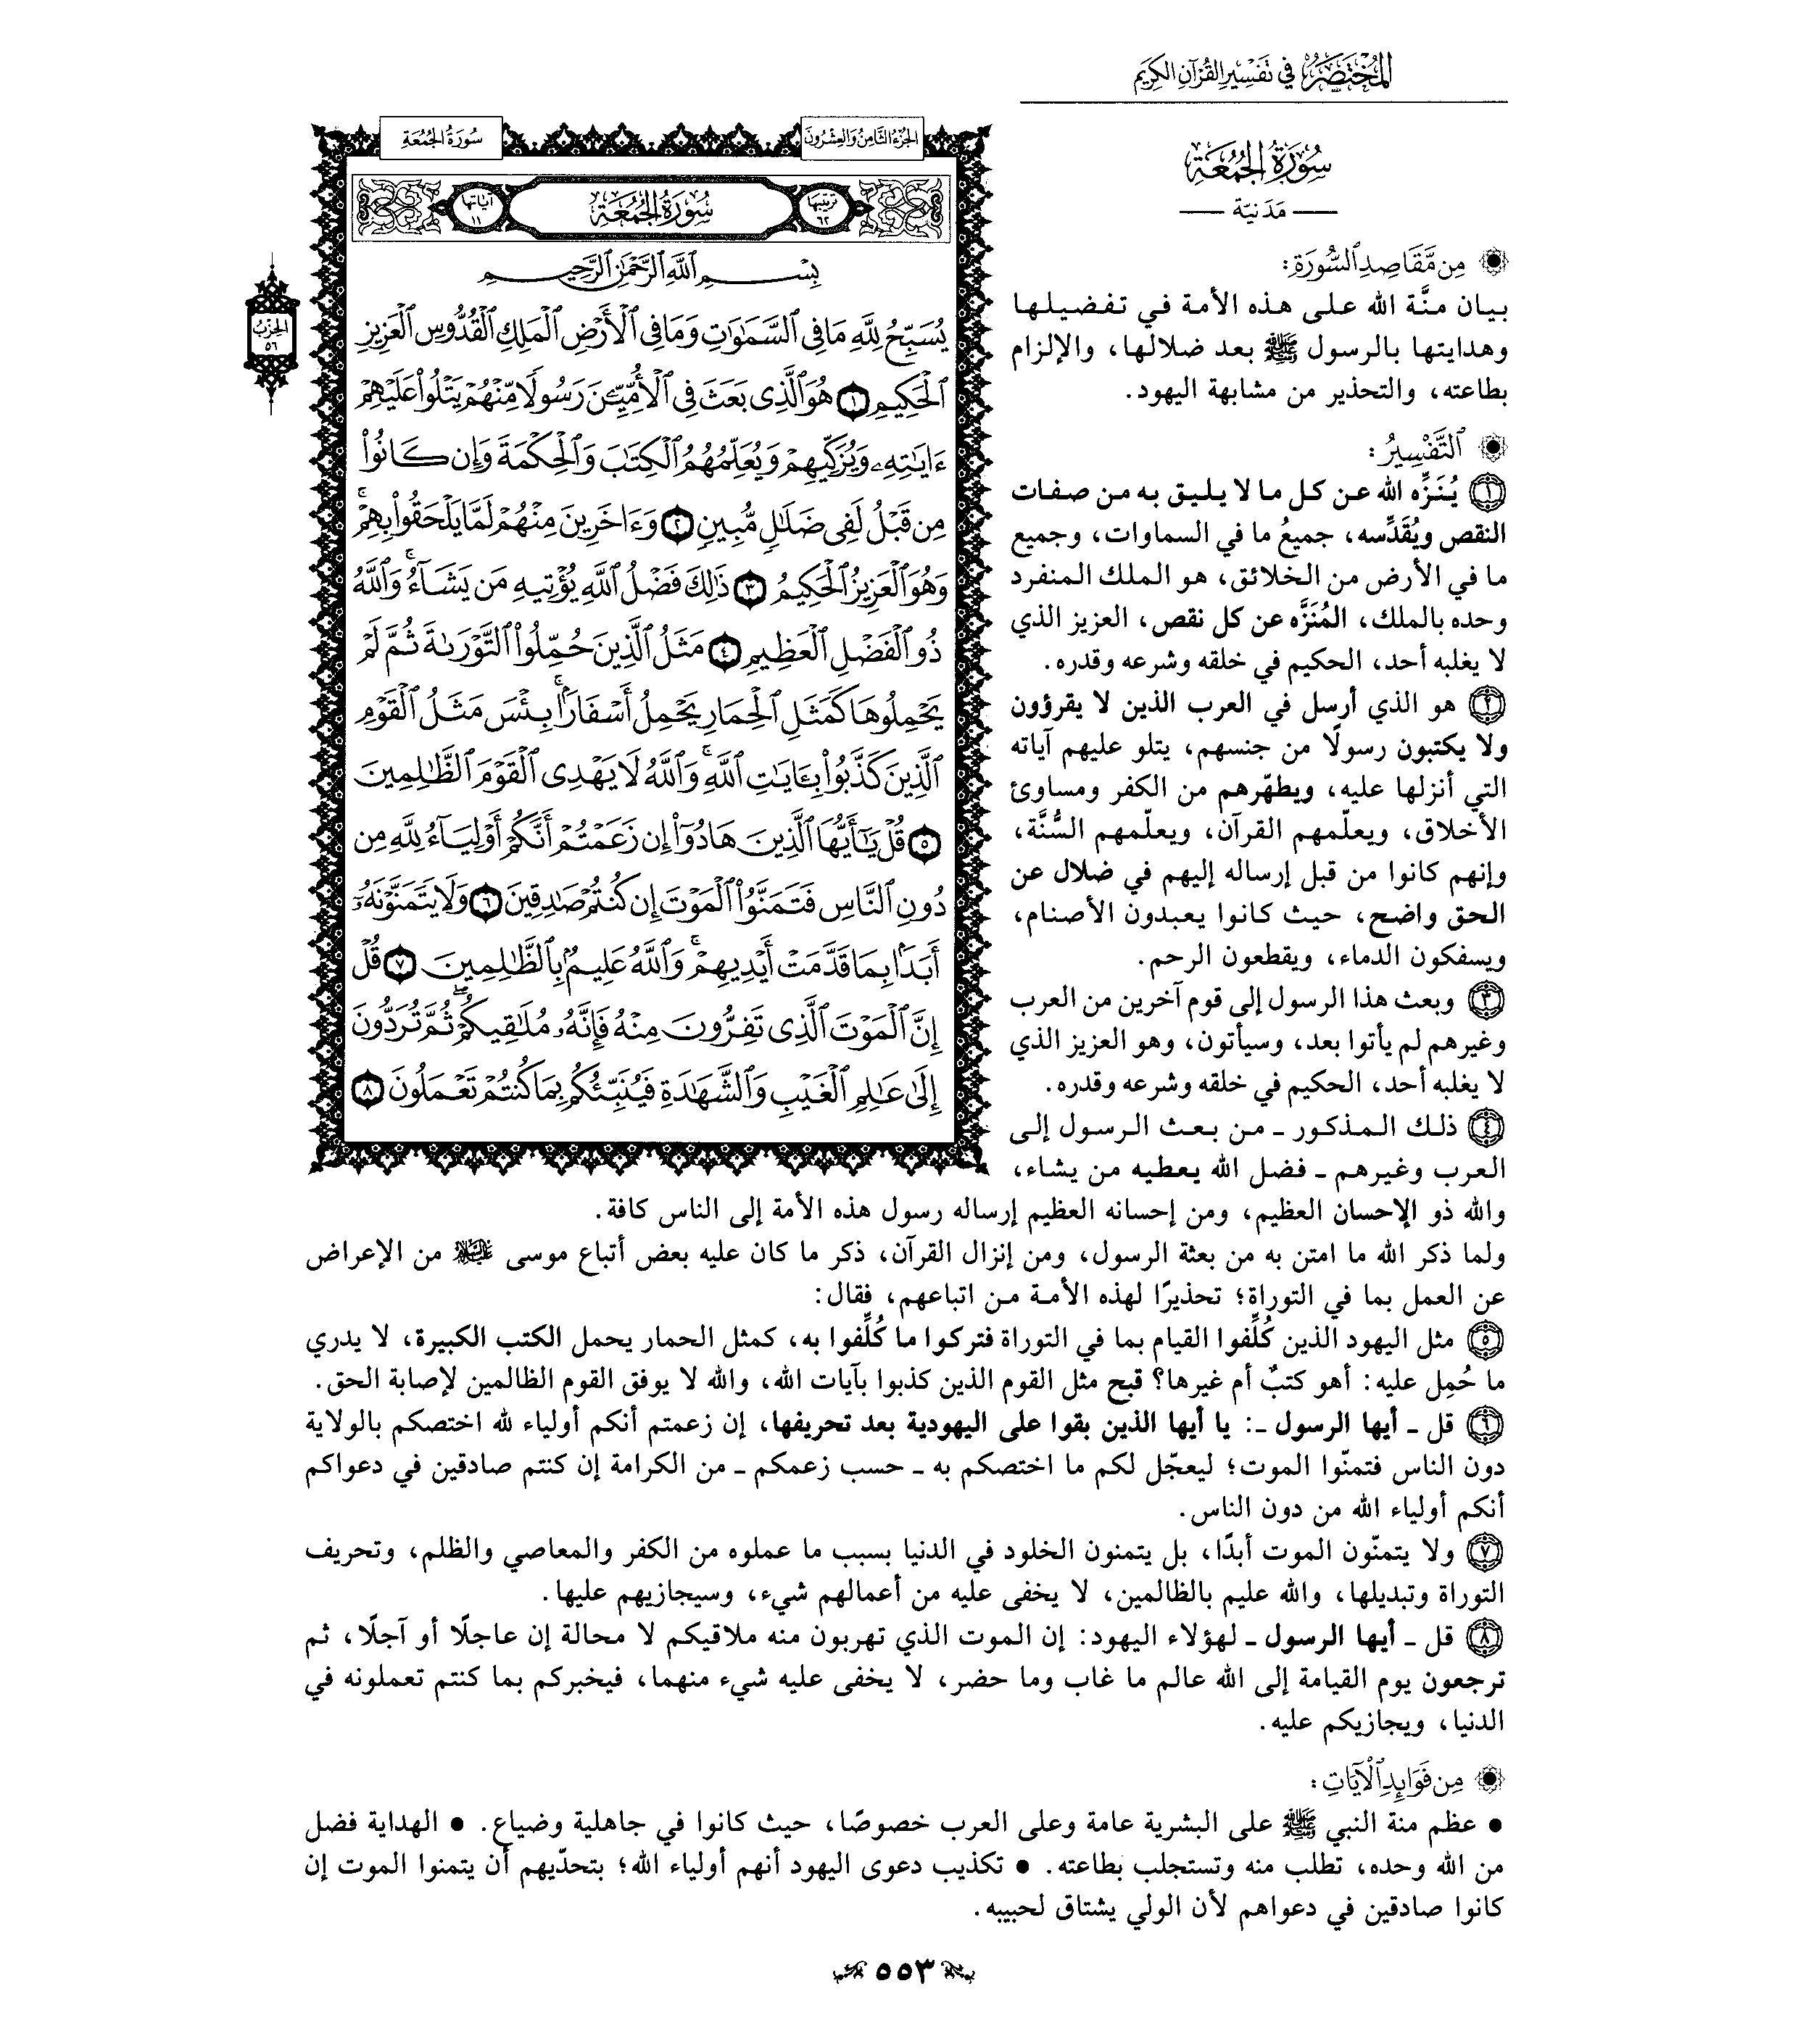 المختصر في تفسير القرآن الكريم
سُورَةُ الجُمُعَةِ
— مَدَنيّة —
مِن مَّقَاصِدِ ٱلسُّورَةِ:
بيان منَّة الله على هذه الأمة في تفضيلها
وهدايتها بالرسول ﷺ بعد ضلالها، والإلزام
بطاعته، والتحذير من مشابهة اليهود.
ٱلتَّفْسِيرُ:
١ يُنَزِّه الله عن كل ما لا يليق به من صفات
النقص ويُقَدِّسه، جميعُ ما في السماوات، وجميع
ما في الأرض من الخلائق، هو الملك المنفرد
وحده بالملك، المُنَزَّه عن كل نقص، العزيز الذي
لا يغلبه أحد، الحكيم في خلقه وشرعه وقدره.
٢ هو الذي أرسل في العرب الذين لا يقرؤون
ولا يكتبون رسولًا من جنسهم، يتلو عليهم آياته
التي أنزلها عليه، ويطهّرهم من الكفر ومساوئ
الأخلاق، ويعلّمهم القرآن، ويعلّمهم السُّنَّة،
وإنهم كانوا من قبل إرساله إليهم في ضلال عن
الحق واضح، حيث كانوا يعبدون الأصنام،
ويسفكون الدماء، ويقطعون الرحم.
٣ وبعث هذا الرسول إلى قوم آخرين من العرب
وغيرهم لم يأتوا بعد، وسيأتون، وهو العزيز الذي
لا يغلبه أحد، الحكيم في خلقه وشرعه وقدره.
٤ ذلك المذكور ـ من بعث الرسول إلى
العرب وغيرهم ـ فضل الله يعطيه من يشاء،
والله ذو الإحسان العظيم، ومن إحسانه العظيم إرساله رسول هذه الأمة إلى الناس كافة.
ولما ذكر الله ما امتن به من بعثة الرسول، ومن إنزال القرآن، ذكر ما كان عليه بعض أتباع موسى عليه السلام من الإعراض
عن العمل بما في التوراة؛ تحذيرًا لهذه الأمة من اتباعهم، فقال:
٥ مثل اليهود الذين كُلِّفوا القيام بما في التوراة فتركوا ما كُلِّفوا به، كمثل الحمار يحمل الكتب الكبيرة، لا يدري
ما حُمِل عليه: أهو كتبٌ أم غيرها؟ قبح مثل القوم الذين كذبوا بآيات الله، والله لا يوفق القوم الظالمين لإصابة الحق.
٦ قل ـ أيها الرسول ـ: يا أيها الذين بقوا على اليهودية بعد تحريفها، إن زعمتم أنكم أولياء لله اختصكم بالولاية
دون الناس فتمنّوا الموت؛ ليعجّل لكم ما اختصكم به ـ حسب زعمكم ـ من الكرامة إن كنتم صادقين في دعواكم
أنكم أولياء الله من دون الناس.
٧ ولا يتمنّون الموت أبدًا، بل يتمنون الخلود في الدنيا بسبب ما عملوه من الكفر والمعاصي والظلم، وتحريف
التوراة وتبديلها، والله عليم بالظالمين، لا يخفى عليه من أعمالهم شيء، وسيجازيهم عليها.
٨ قل ـ أيها الرسول ـ لهؤلاء اليهود: إن الموت الذي تهربون منه ملاقيكم لا محالة إن عاجلًا أو آجلًا، ثم
ترجعون يوم القيامة إلى الله عالم ما غاب وما حضر، لا يخفى عليه شيء منهما، فيخبركم بما كنتم تعملونه في
الدنيا، ويجازيكم عليه.
مِن فَوَائِدِ ٱلْآيَاتِ:
● عظم منة النبي ﷺ على البشرية عامة وعلى العرب خصوصًا، حيث كانوا في جاهلية وضياع. ● الهداية فضل
من الله وحده، تطلب منه وتستجلب بطاعته. ● تكذيب دعوى اليهود أنهم أولياء الله؛ بتحدّيهم أن يتمنوا الموت إن
كانوا صادقين في دعواهم لأن الولي يشتاق لحبيبه.
الجُزْءُ الثَّامِنُ وَالعِشْرُونَ
سُورَةُ الجُمُعَةِ
ترتيبها ٦٢
سُورَةُ الجُمُعَةِ
آياتها ١١
بِسْمِ ٱللَّهِ ٱلرَّحْمَٰنِ ٱلرَّحِيمِ
يُسَبِّحُ لِلَّهِ مَا فِي ٱلسَّمَٰوَٰتِ وَمَا فِي ٱلْأَرْضِ ٱلْمَلِكِ ٱلْقُدُّوسِ ٱلْعَزِيزِ
ٱلْحَكِيمِ ١ هُوَ ٱلَّذِي بَعَثَ فِي ٱلْأُمِّيِّـۧنَ رَسُولًا مِّنْهُمْ يَتْلُوا۟ عَلَيْهِمْ
ءَايَٰتِهِۦ وَيُزَكِّيهِمْ وَيُعَلِّمُهُمُ ٱلْكِتَٰبَ وَٱلْحِكْمَةَ وَإِن كَانُوا۟
مِن قَبْلُ لَفِي ضَلَٰلٍ مُّبِينٍ ٢ وَءَاخَرِينَ مِنْهُمْ لَمَّا يَلْحَقُوا۟ بِهِمْۚ
وَهُوَ ٱلْعَزِيزُ ٱلْحَكِيمُ ٣ ذَٰلِكَ فَضْلُ ٱللَّهِ يُؤْتِيهِ مَن يَشَآءُۚ وَٱللَّهُ
ذُو ٱلْفَضْلِ ٱلْعَظِيمِ ٤ مَثَلُ ٱلَّذِينَ حُمِّلُوا۟ ٱلتَّوْرَىٰةَ ثُمَّ لَمْ
يَحْمِلُوهَا كَمَثَلِ ٱلْحِمَارِ يَحْمِلُ أَسْفَارًۢاۚ بِئْسَ مَثَلُ ٱلْقَوْمِ
ٱلَّذِينَ كَذَّبُوا۟ بِـَٔايَٰتِ ٱللَّهِۚ وَٱللَّهُ لَا يَهْدِي ٱلْقَوْمَ ٱلظَّٰلِمِينَ
٥ قُلْ يَٰٓأَيُّهَا ٱلَّذِينَ هَادُوٓا۟ إِن زَعَمْتُمْ أَنَّكُمْ أَوْلِيَآءُ لِلَّهِ مِن
دُونِ ٱلنَّاسِ فَتَمَنَّوُا۟ ٱلْمَوْتَ إِن كُنتُمْ صَٰدِقِينَ ٦ وَلَا يَتَمَنَّوْنَهُۥٓ
أَبَدًۢا بِمَا قَدَّمَتْ أَيْدِيهِمْۚ وَٱللَّهُ عَلِيمٌۢ بِٱلظَّٰلِمِينَ ٧ قُلْ
إِنَّ ٱلْمَوْتَ ٱلَّذِي تَفِرُّونَ مِنْهُ فَإِنَّهُۥ مُلَٰقِيكُمْۖ ثُمَّ تُرَدُّونَ
إِلَىٰ عَٰلِمِ ٱلْغَيْبِ وَٱلشَّهَٰدَةِ فَيُنَبِّئُكُم بِمَا كُنتُمْ تَعْمَلُونَ ٨
الحزب
٥٦
٥٥٣